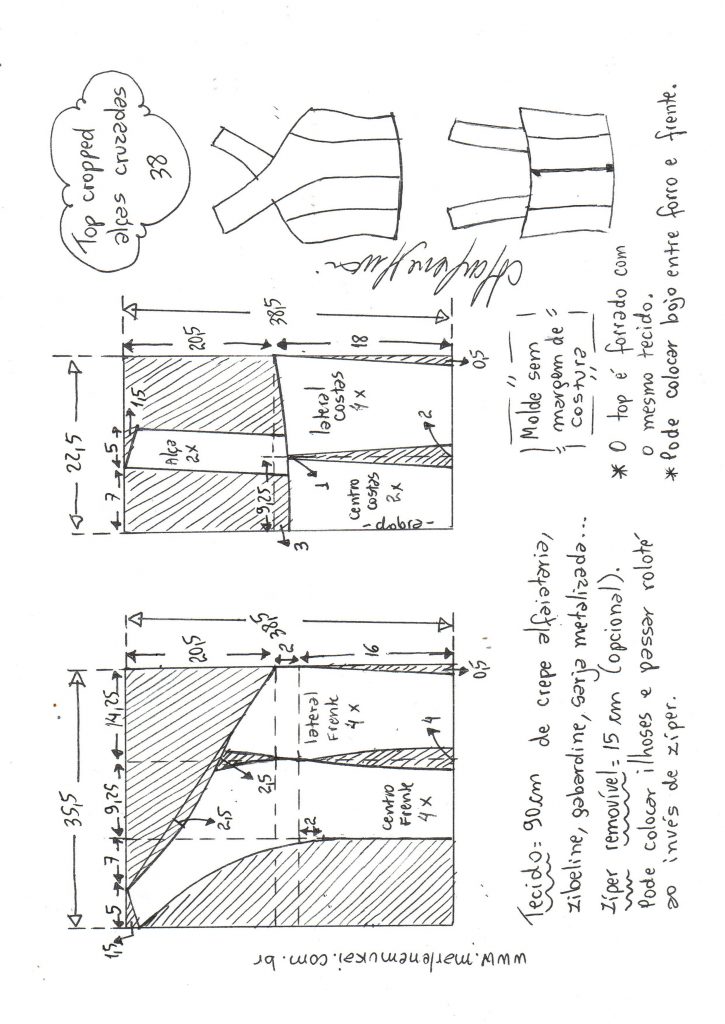 Top cropped
alças cruzadas
38
22,5
7
5
1,5
20,5
38,5
18
Alça
2x
9,25
3
1
lateral
costas
4x
centro
costas
2x
2
0,5
Molde sem
margem de
costura
* O top é forrado com
o mesmo tecido.
* Pode colocar bojo entre forro e frente.
35,5
5
7
9,25
14,25
1,5
20,5
38,5
2
16
2,5
2,5
2
lateral
Frente
4x
centro
Frente
4x
4
0,5
Tecido= 90cm de crepe alfaiataria,
zibeline, gabardine, sarja metalizada...
Zíper removível= 15cm (opcional).
Pode colocar ilhoses e passar roloté
ao invés de zíper.
www.marlenemukai.com.br